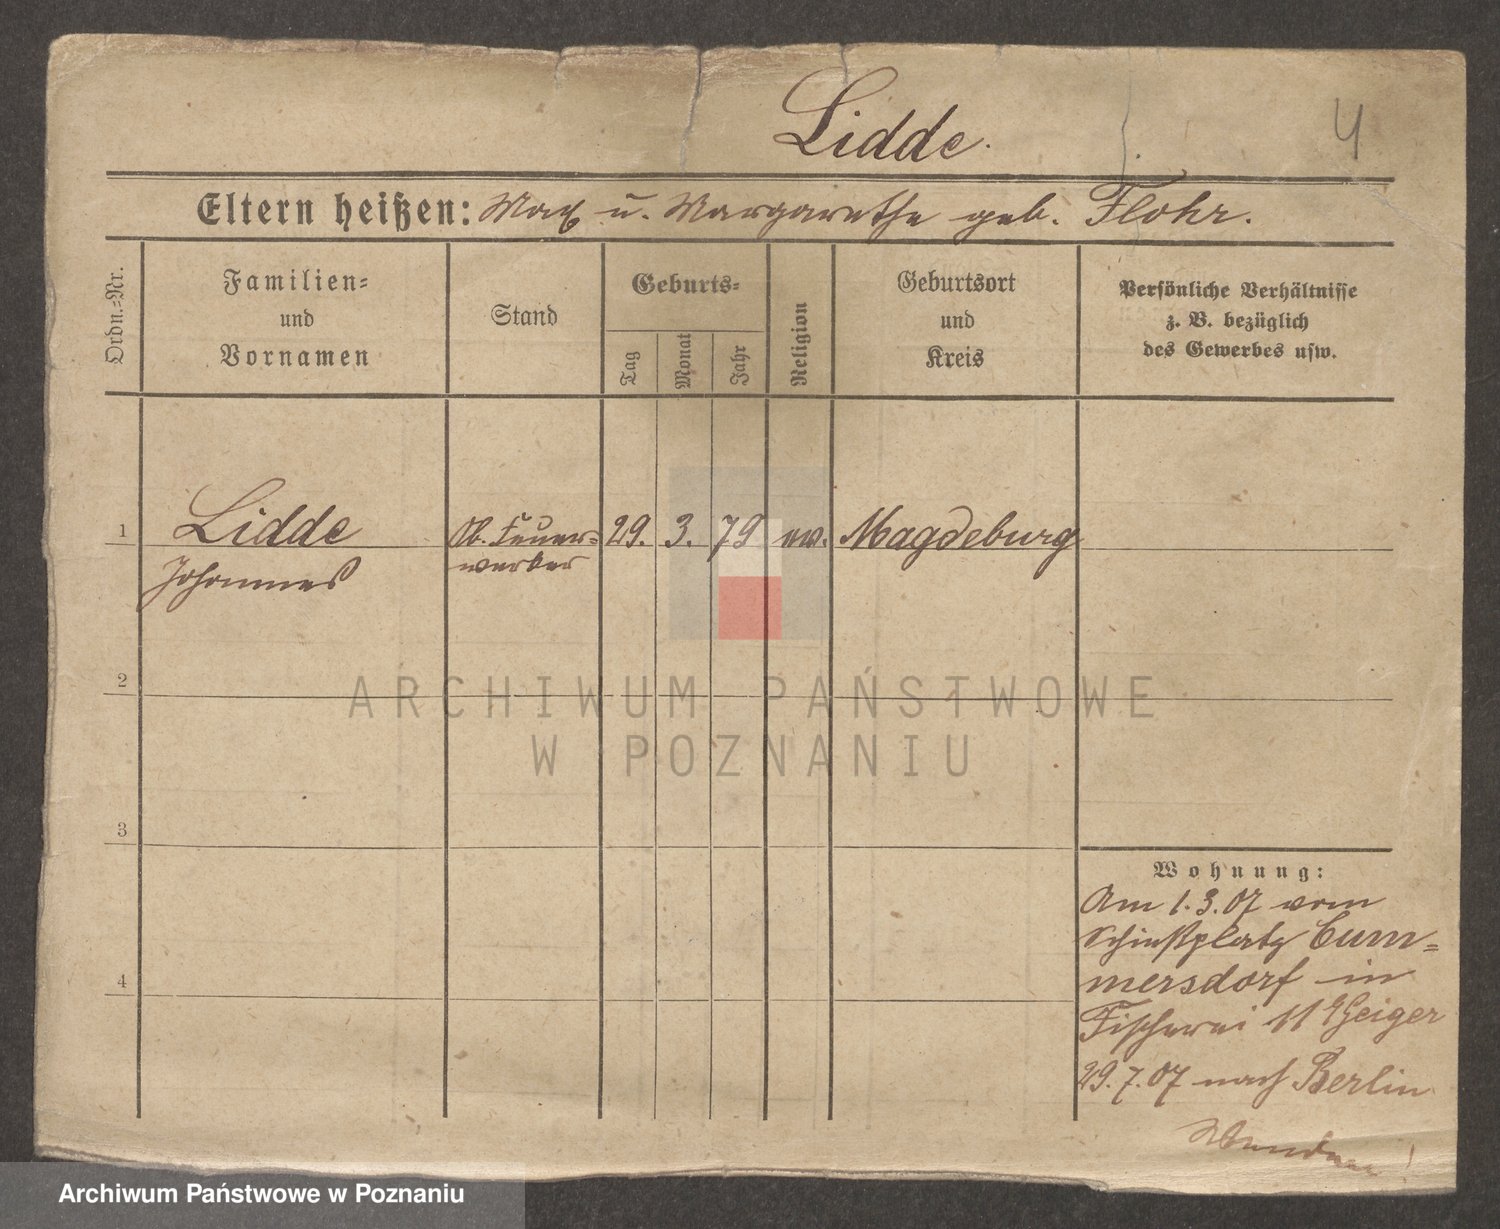 Lidde.
4
Eltern heißen: Max u. Margarethe geb. Flohr.
Ordn.=Nr.
Familien=
und
Vornamen
Stand
Geburts=
Tag
Monat
Jahr
Religion
Geburtsort
und
Kreis
Persönliche Verhältnisse
z. B. bezüglich
des Gewerbes usw.
1
Lidde
Johannes
Ob. Feuer=
werker
29. 3. 79 ev. Magdeburg
2
3
4
Wohnung:
Am 1.3.07 vom
Schießplatz Cum=
mersdorf in
Fischerei 11 Geiger
29.7.07 nach Berlin
Wenden!
ARCHIWUM PAŃSTWOWE
W POZNANIU
Archiwum Państwowe w Poznaniu